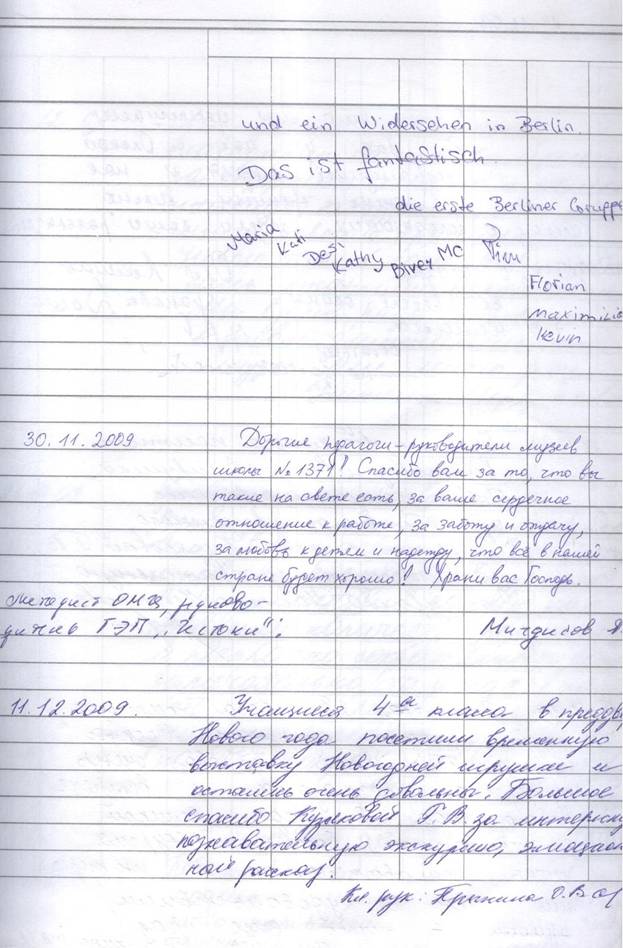 und ein Widersehen in Berlin.
Das ist fantastisch.
die erste Berliner Gruppe
Maria
Kati
Desi
Kathy
MC
Florian
Maximilia
Kevin
30.11.2009
Дорогие педагоги-руководители музеев
школы №1371! Спасибо вам за то, что вы
такие на свете есть, за ваше сердечное
отношение к работе, за заботу и отдачу,
за любовь к детям и надежду, что всё в нашей
стране будет хорошо! Храни вас Господь.
методист ОМЦ, руково-
дитель ГЭП „Истоки":
11.12.2009.
Учащиеся 4 класса в преддве
Нового года посетили временную
выставку Новогодней игрушки и
остались очень довольны. Большое
спасибо Г.В. за интересну
познавательную экскурсию, эмоцион
ный рассказ.
Кл. рук: О.В.